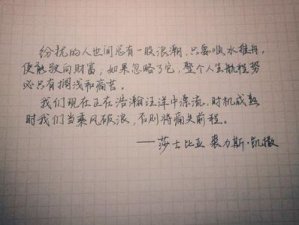 纷扰的人世间总有一股浪潮,只要顺水推舟,
便能驶向财富,如果忽略了它,整个人生航程势
必只有搁浅和痛苦。
我们现在正在浩瀚汪洋中漂流,时机成熟
时我们当乘风破浪,否则将痛失前程。
——莎士比亚 裘力斯·凯撒